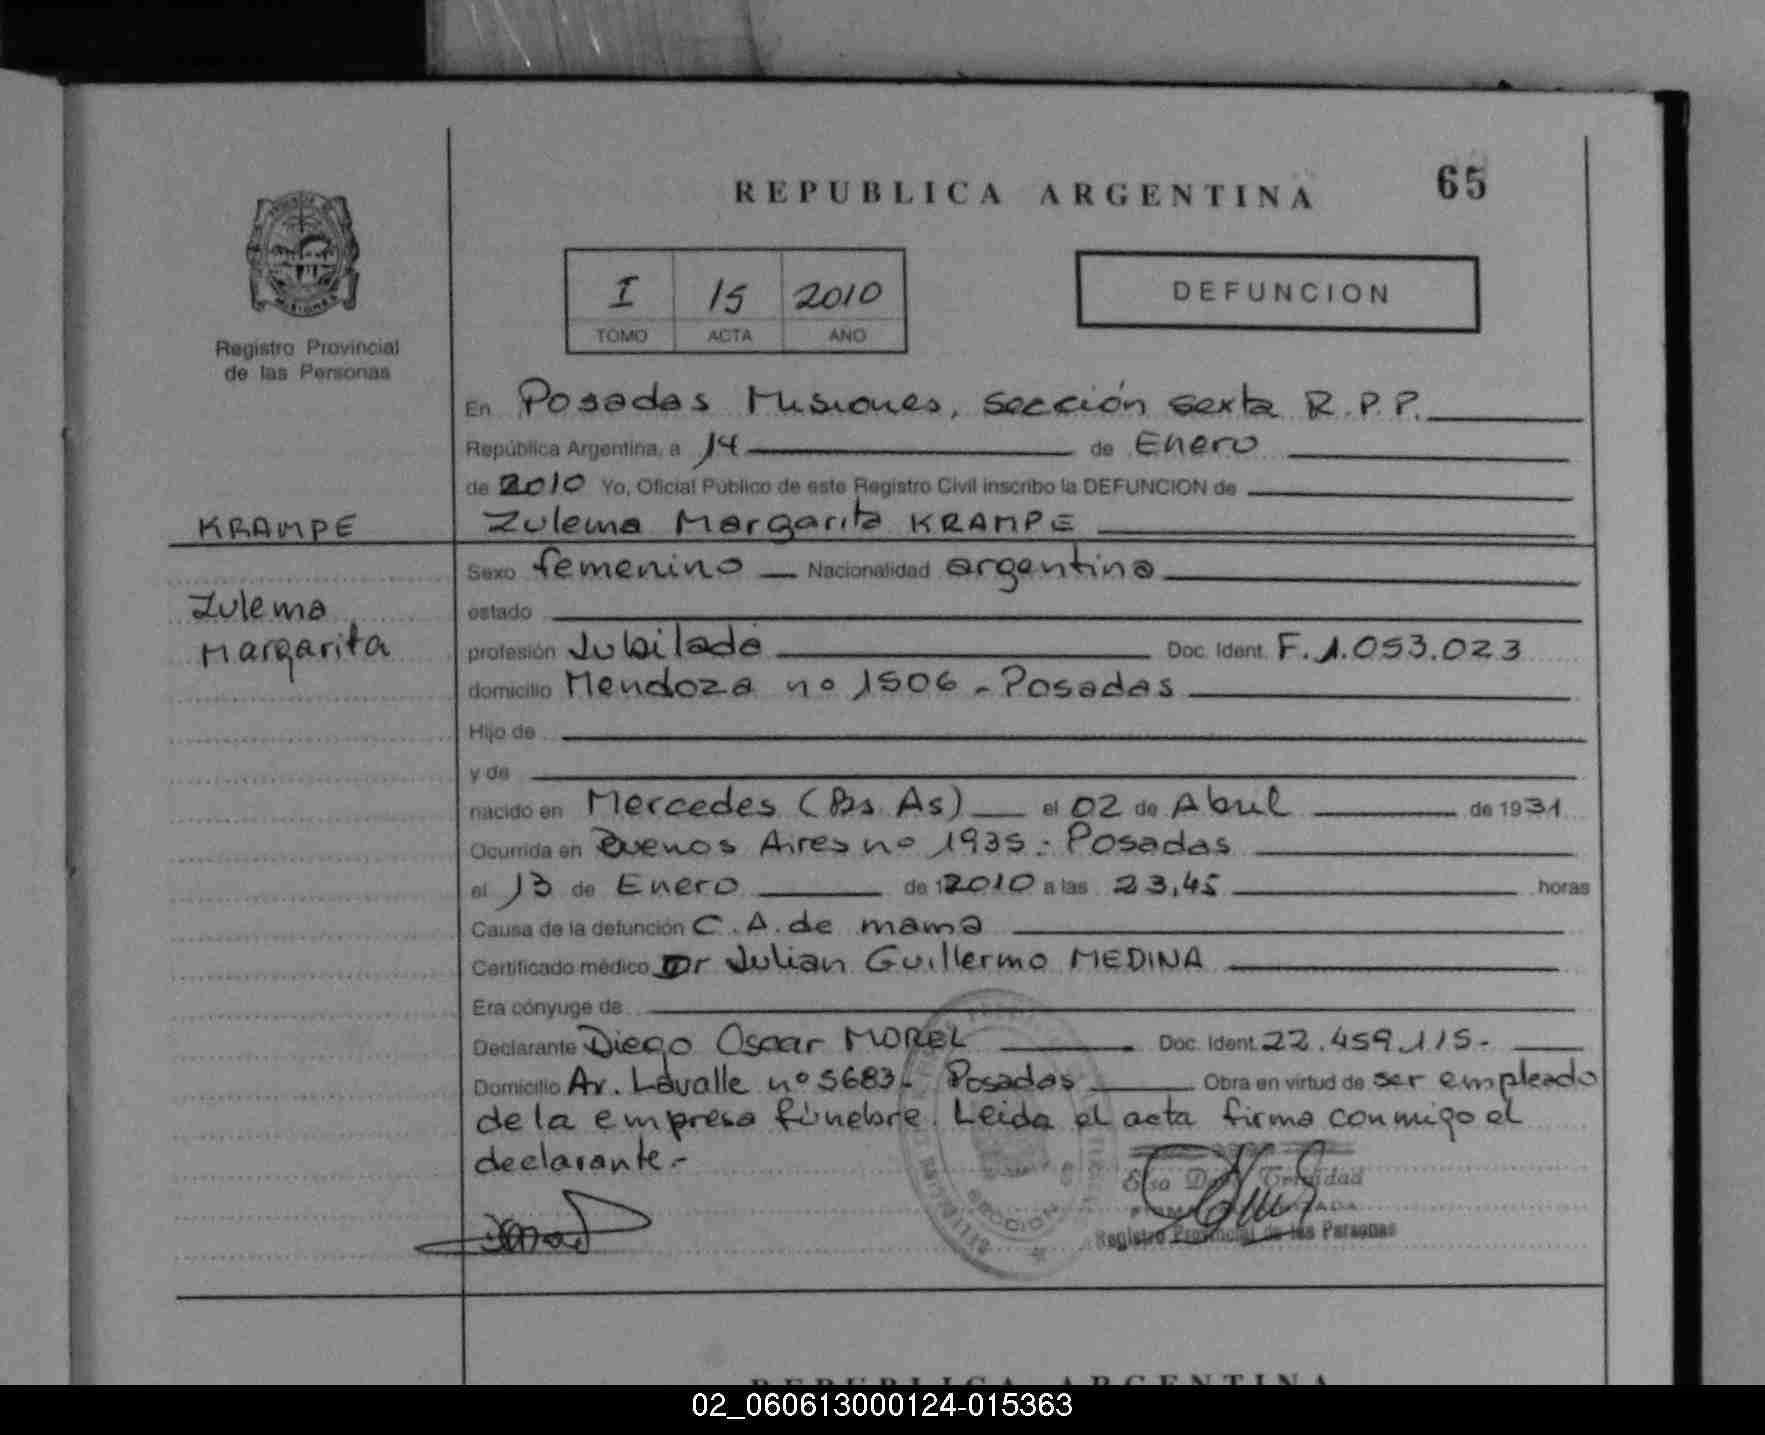 REPUBLICA ARGENTINA 65
I 15 2010
TOMO ACTA AÑO
DEFUNCION
Registro Provincial
de las Personas
En Posadas Misiones, sección sexta R.P.P.
República Argentina, a 14 de Enero
de 2010 Yo, Oficial Público de este Registro Civil inscribo la DEFUNCION de
KRAMPE
Zulema Margarita KRAMPE
Sexo femenino Nacionalidad argentina
Zulema
Margarita
estado
profesión Jubilada Doc. Ident. F. 1.053.023
domicilio Mendoza nº 1506 - Posadas
Hijo de
y de
nacido en Mercedes (Bs As) el 02 de Abril de 1931
Ocurrida en Buenos Aires nº 1935 - Posadas
el 13 de Enero de 2010 a las 23,45 horas
Causa de la defunción C.A. de mama
Certificado médico Dr Julian Guillermo MEDINA
Era cónyuge de
Declarante Diego Oscar MOREL Doc. Ident. 22.459.115-
Domicilio Av. Lavalle nº 5683- Posadas Obra en virtud de ser empleado
de la empresa fúnebre. Leida el acta firma conmigo el
declarante.-
Trinidad
Registro Provincial de las Personas
SECCION
REPUBLICA ARGENTINA
02_060613000124-015363